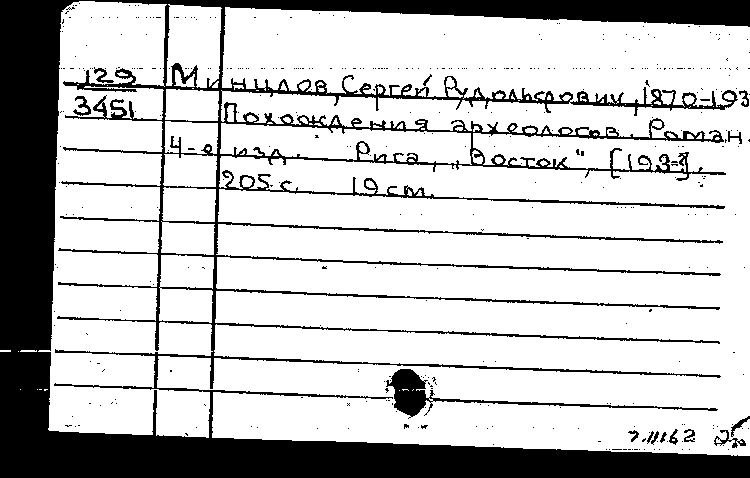 129 Минцлов, Сергей Рудольфович, 1870-193
3451 Похождения археологов. Роман.
4-е изд. Рига, „Восток", [193-?].
205 с. 19 cm.
7.III62